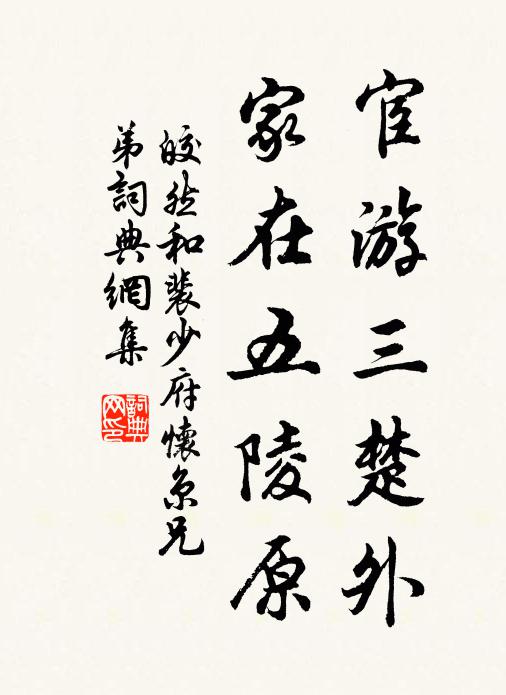 宦游三楚外
家在五陵原
皎然和裴少府懷京兄
弟詞典網集
詞典
网印